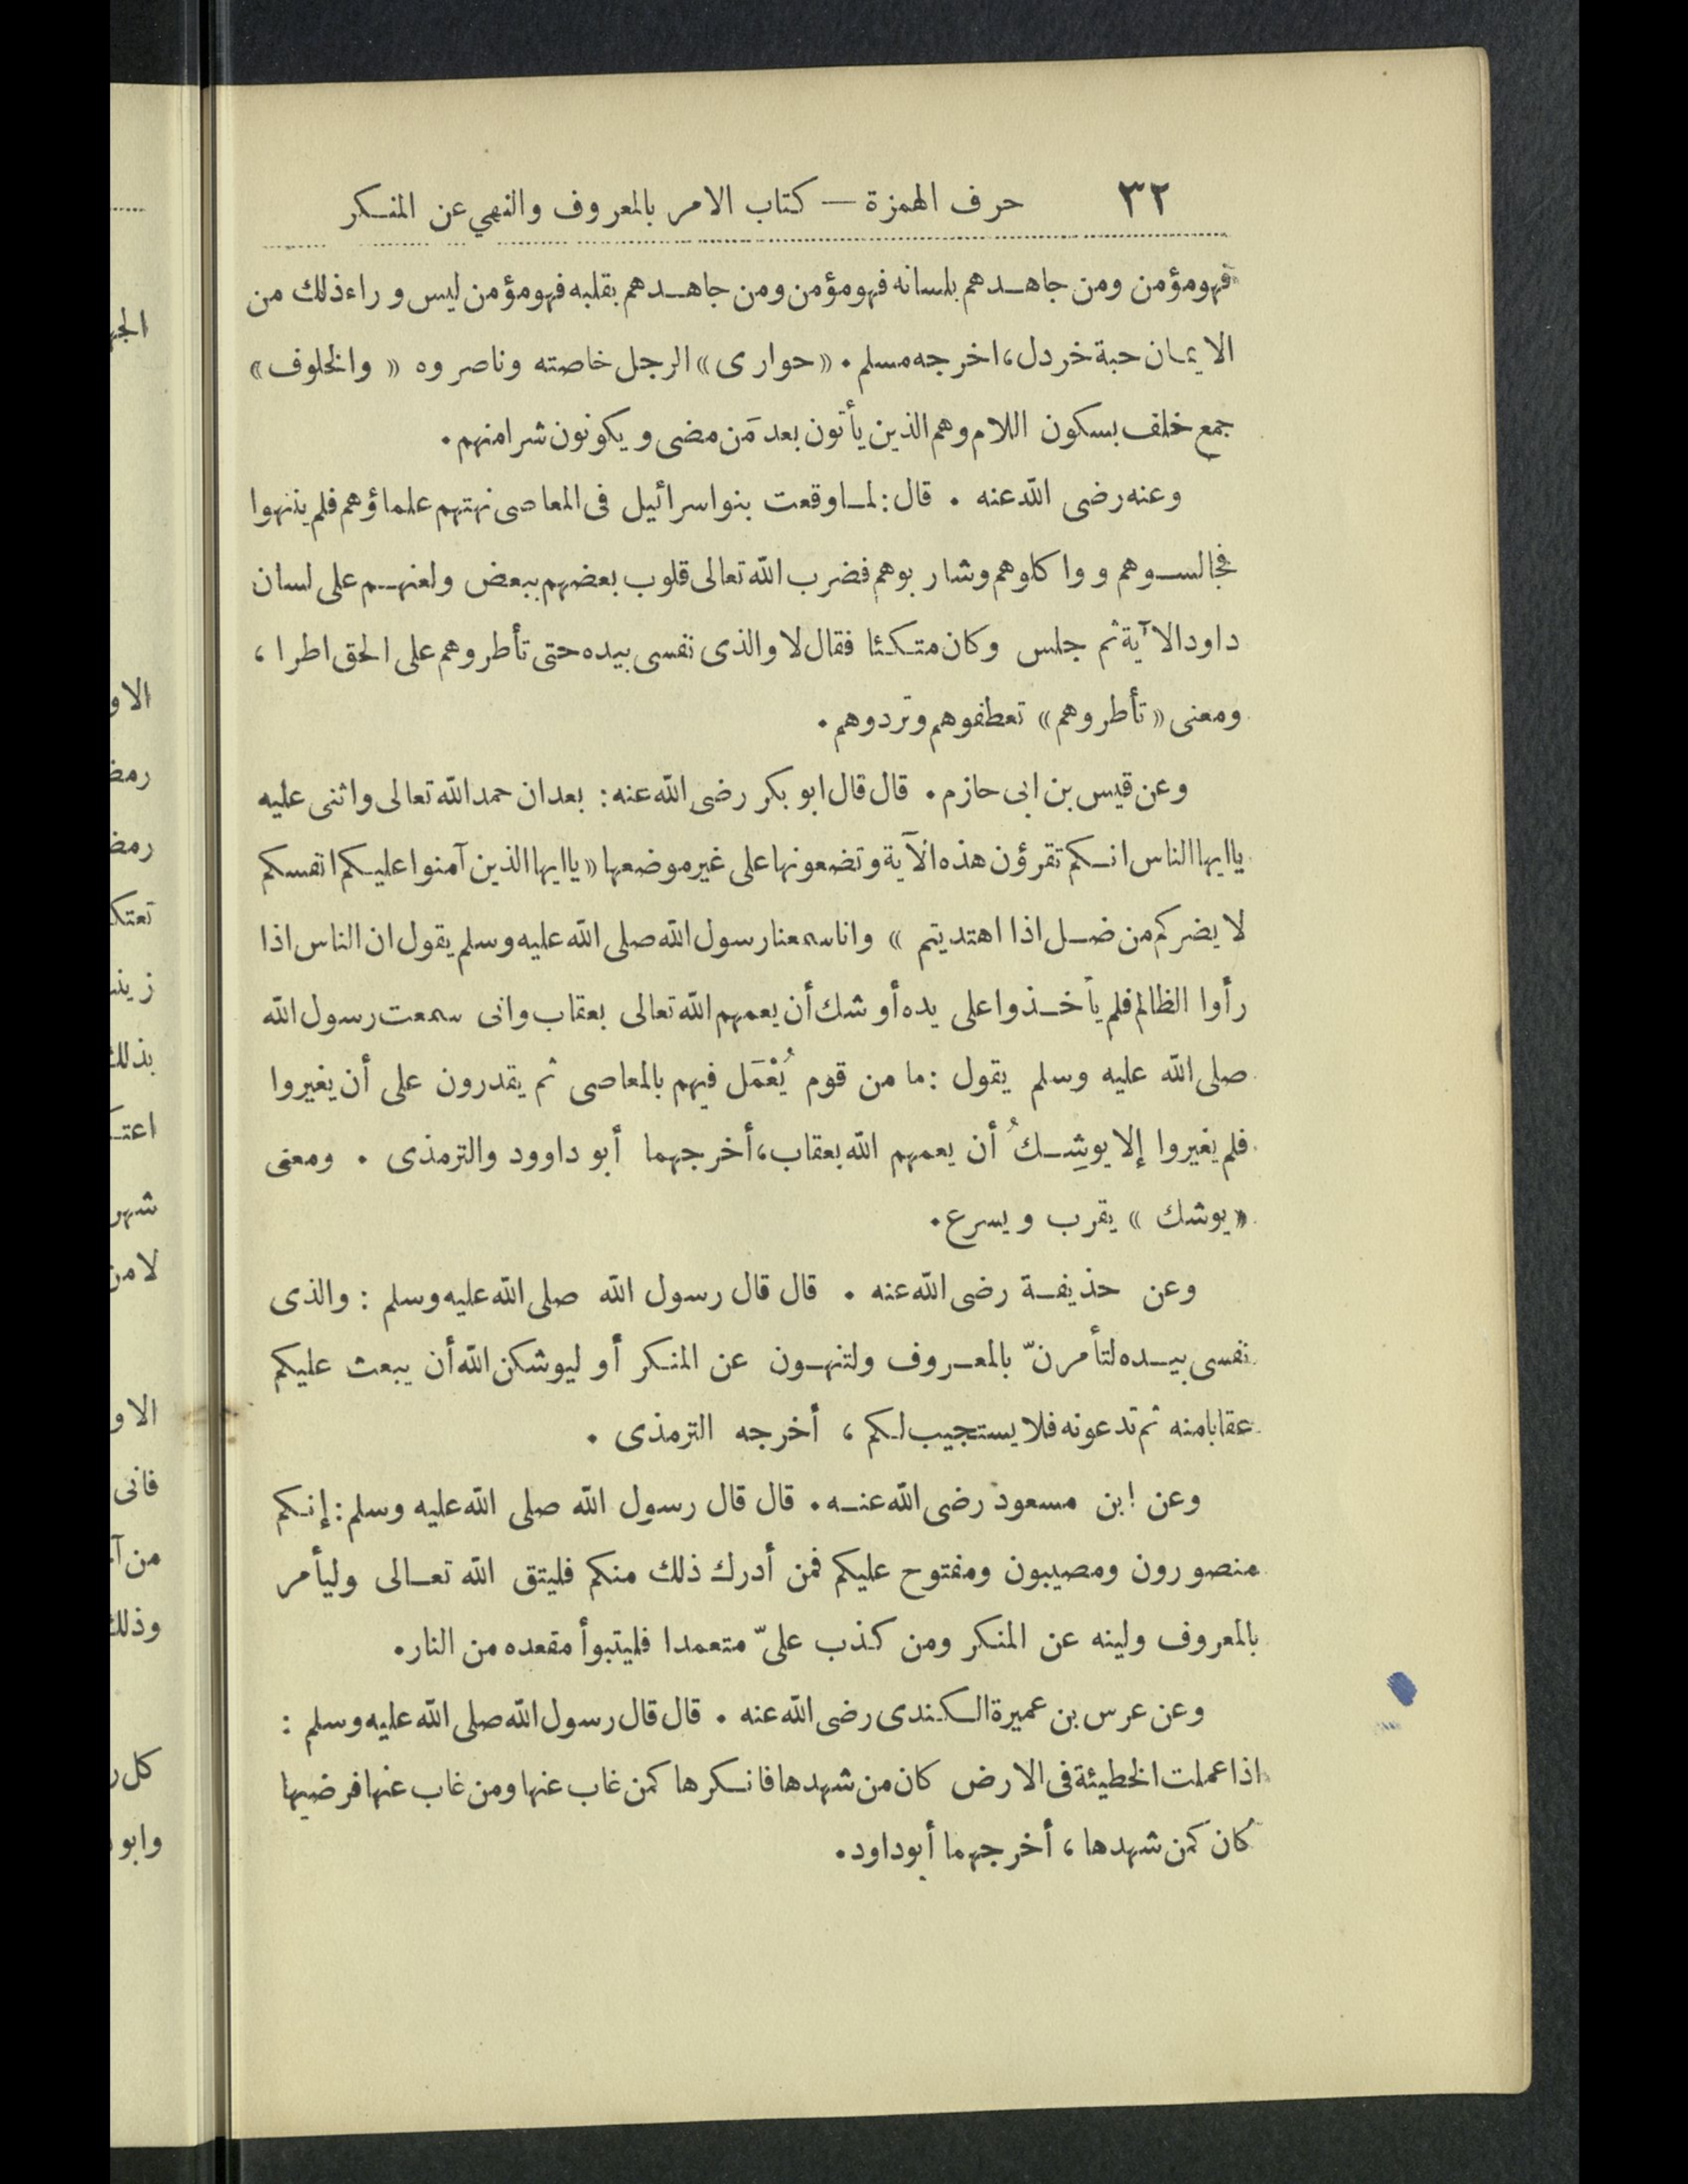 ٣٢ حرف الهمزة — كتاب الامر بالمعروف والنهي عن المنكر
فهو مؤمن ومن جاهدهم بلسانه فهو مؤمن ومن جاهدهم بقلبه فهو مؤمن ليس وراء ذلك من
الايمان حبة خردل، اخرجه مسلم. «حوارى» الرجل خاصته وناصروه «والخلوف»
جمع خلف بسكون اللام وهم الذين يأتون بعد مَن مضى ويكونون شرا منهم.
وعنه رضى الله عنه. قال: لما وقعت بنو اسرائيل فى المعاصى نهتهم علماؤهم فلم ينتهوا
فجالسوهم وواكلوهم وشاربوهم فضرب الله تعالى قلوب بعضهم ببعض ولعنهم على لسان
داود الآية ثم جلس وكان متكئا فقال لا والذى نفسى بيده حتى تأطروهم على الحق اطرا،
ومعنى «تأطروهم» تعطفوهم وتردوهم.
وعن قيس بن ابى حازم. قال قال ابو بكر رضى الله عنه: بعد ان حمد الله تعالى واثنى عليه
يا ايها الناس انكم تقرؤن هذه الآية وتضعونها على غير موضعها «يا ايها الذين آمنوا عليكم انفسكم
لا يضركم من ضل اذا اهتديتم» وانا سمعنا رسول الله صلى الله عليه وسلم يقول ان الناس اذا
رأوا الظالم فلم يأخذوا على يده أوشك أن يعمهم الله تعالى بعقاب وانى سمعت رسول الله
صلى الله عليه وسلم يقول: ما من قوم يُعْمَل فيهم بالمعاصى ثم يقدرون على أن يغيروا
فلم يغيروا إلا يوشِكُ أن يعمهم الله بعقاب، أخرجهما أبو داوود والترمذى. ومعنى
«يوشك» يقرب ويسرع.
وعن حذيفة رضى الله عنه. قال قال رسول الله صلى الله عليه وسلم: والذى
نفسى بيده لتأمرنّ بالمعروف ولتنهون عن المنكر أو ليوشكن الله أن يبعث عليكم
عقابا منه ثم تدعونه فلا يستجيب لكم، أخرجه الترمذى.
وعن ابن مسعود رضى الله عنه. قال قال رسول الله صلى الله عليه وسلم: إنكم
منصورون ومصيبون ومفتوح عليكم فمن أدرك ذلك منكم فليتق الله تعالى وليأمر
بالمعروف ولينه عن المنكر ومن كذب علىّ متعمدا فليتبوأ مقعده من النار.
وعن عرس بن عميرة الكندى رضى الله عنه. قال قال رسول الله صلى الله عليه وسلم:
اذا عملت الخطيئة فى الارض كان من شهدها فانكرها كمن غاب عنها ومن غاب عنها فرضيها
كان كمن شهدها، أخرجهما أبو داود.